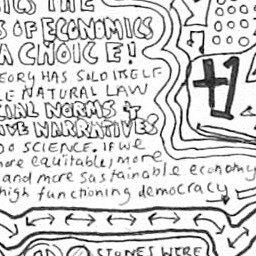 ICS THE
S OF ECONOMICS
A CHOICE!
EORY HAS SOLD ITSELF
LE NATURAL LAW
CIAL NORMS +
IVE NARRATIVES
DO SCIENCE. IF WE
more equitable, more
and more sustainable economy
high functioning democracy
STONES WERE